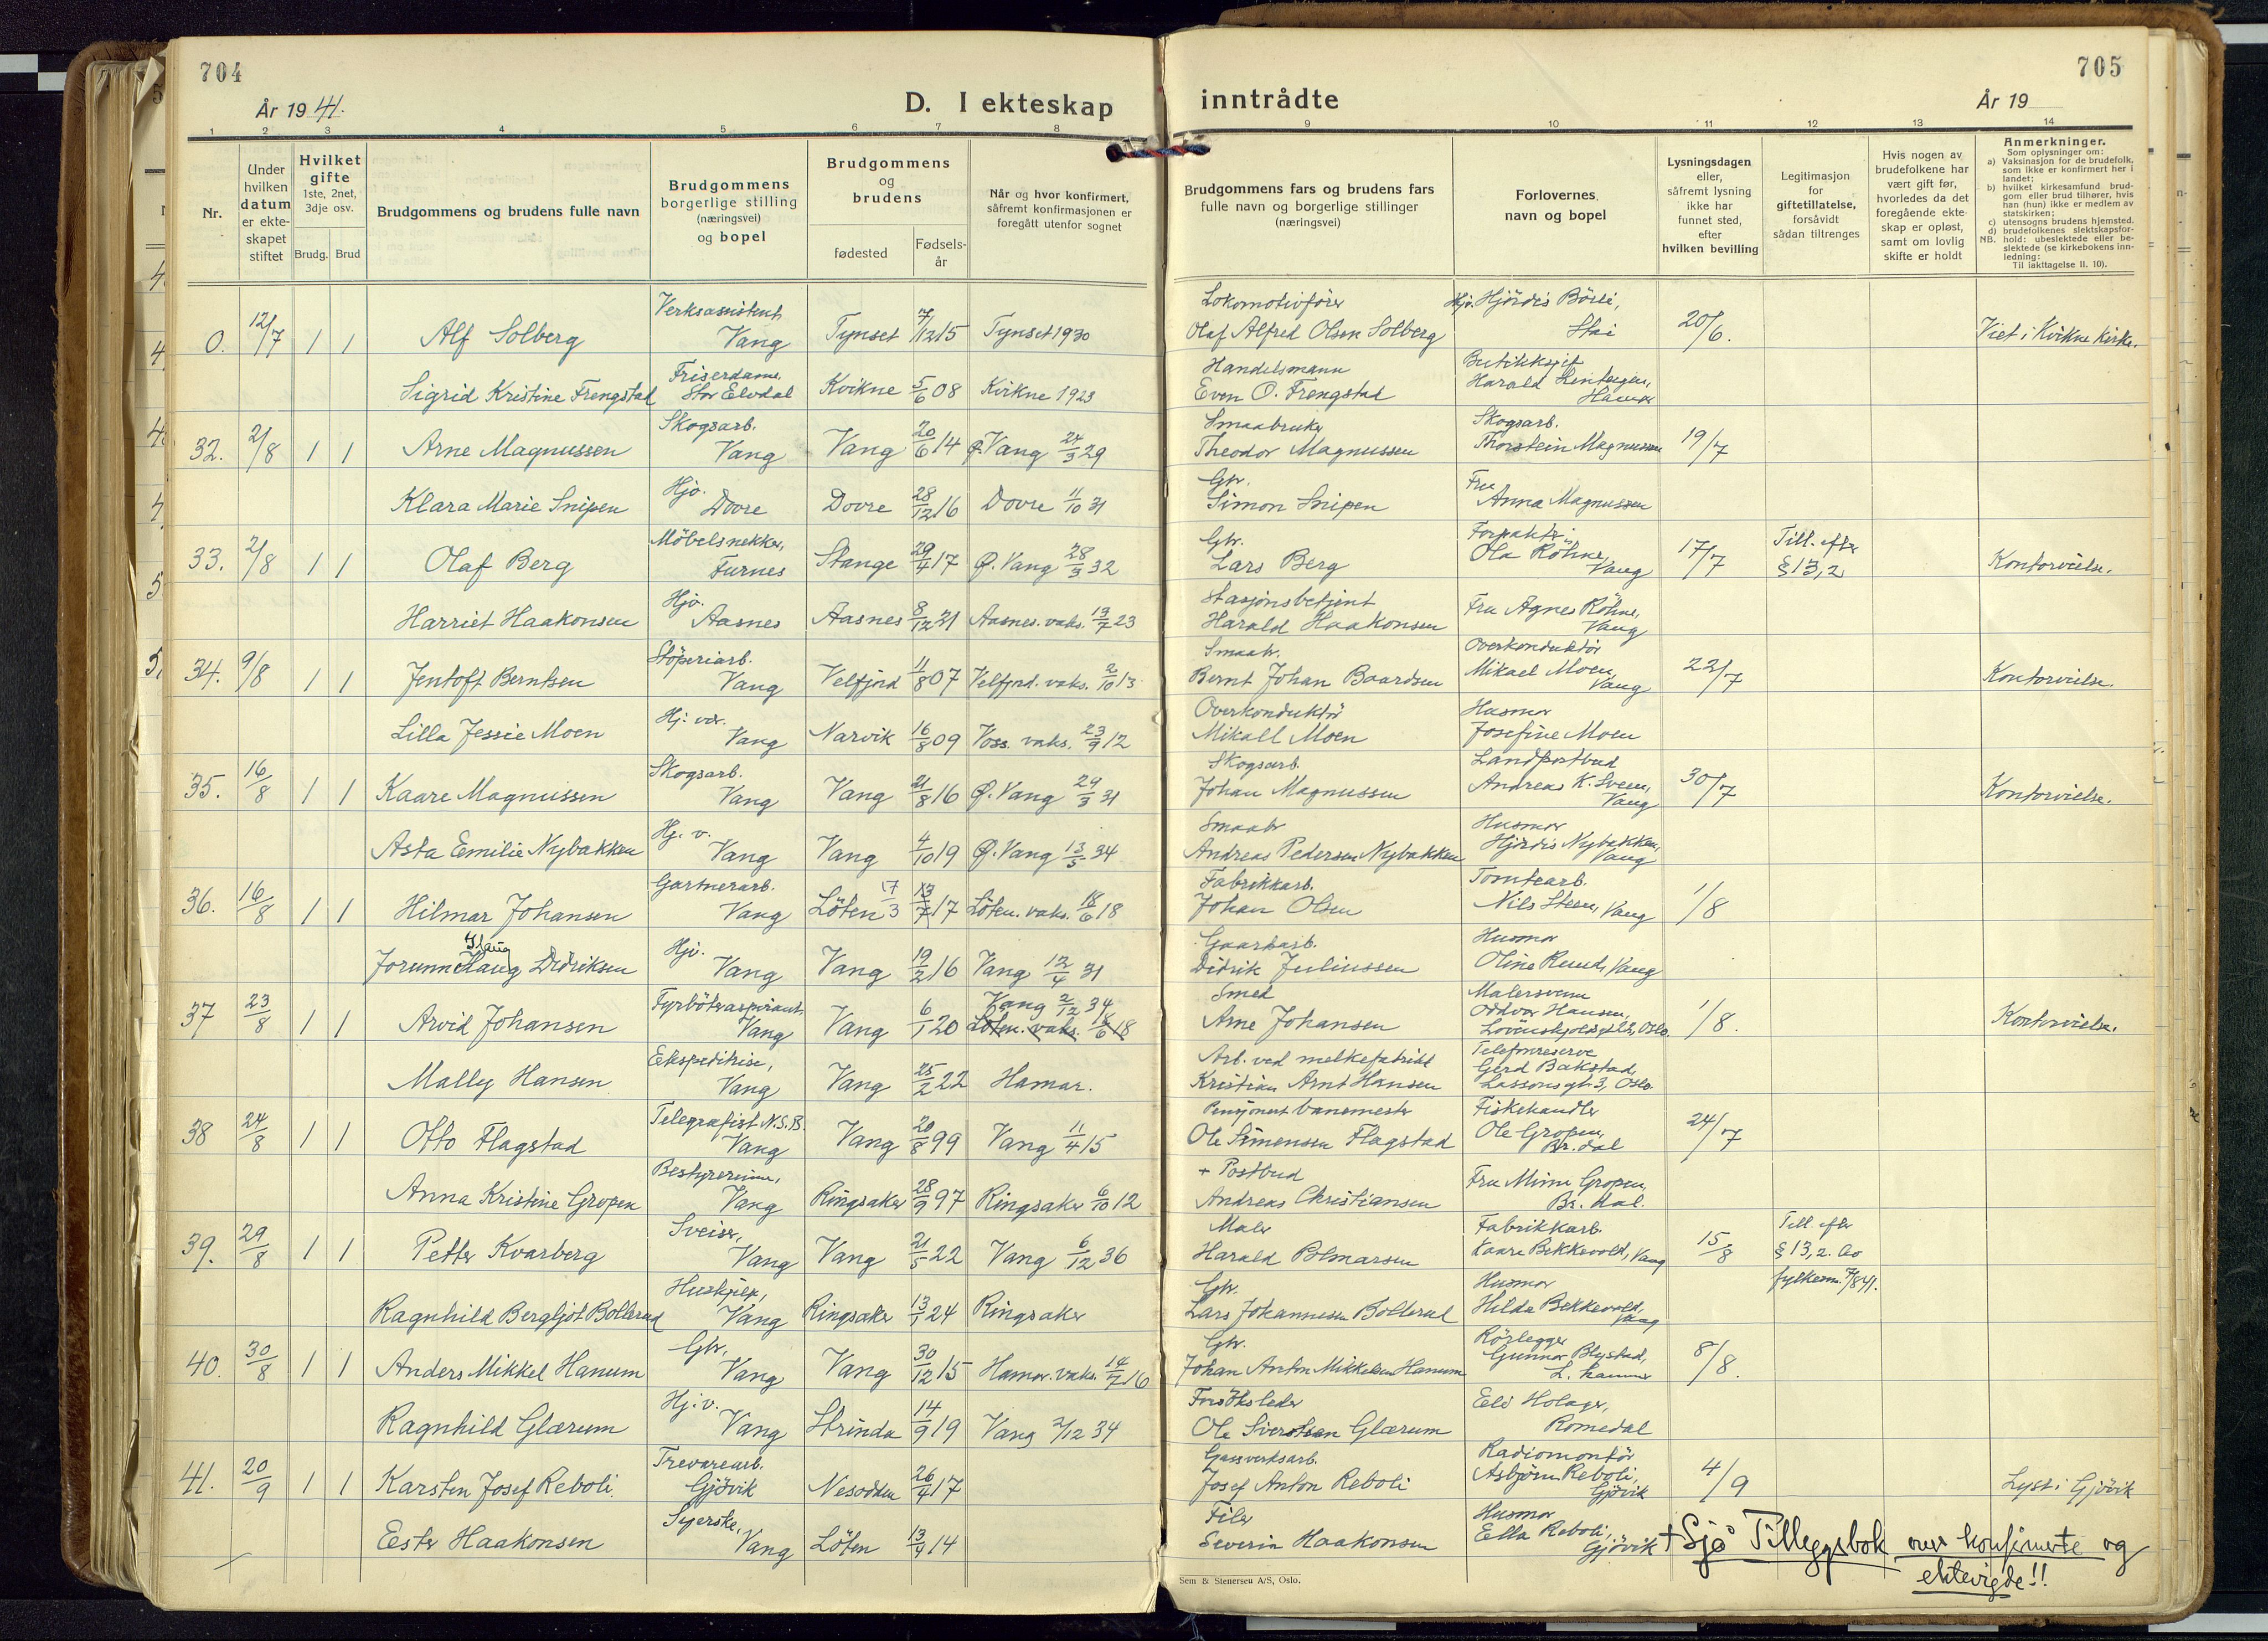 704
705
År 1941.
D. I ekteskap
inntrådte
År 19
1 2 3 4 5 6 7 8 9 10 11 12 13 14
Nr.
Under hvilken datum er ekteskapet stiftet
Hvilket gifte 1ste, 2net, 3dje osv.
Brudg. Brud
Brudgommens og brudens fulle navn
Brudgommens borgerlige stilling (næringsvei) og bopel
Brudgommens og brudens
fødested
Fødsels-år
Når og hvor konfirmert, såfremt konfirmasjonen er foregått utenfor sognet
Brudgommens fars og brudens fars fulle navn og borgerlige stillinger (næringsvei)
Forlovernes navn og bopel
Lysningsdagen eller, såfremt lysning ikke har funnet sted, efter hvilken bevilling
Legitimasjon for giftetillatelse, forsåvidt sådan tiltrenges
Hvis nogen av brudefolkene har vært gift før, hvorledes da det foregående ekteskap er opløst, samt om lovlig skifte er holdt
Anmerkninger.
Som oplysninger om:
a) Vaksinasjon for de brudefolk, som ikke er konfirmert her i landet;
b) hvilket kirkesamfund brudgom eller brud tilhører, hvis han (hun) ikke er medlem av statskirken;
c) utensogns brudens hjemsted.
d) brudefolkenes slektskapsforhold: ubeslektede eller beslektede (se kirkebokens innledning:
NB.
Til iakttagelse II. 10).
0. 12/7 1 1 Alf Solberg Verksassistent Vang Tynset 7/12 15 Tynset 1930 Lokomotivfører Olaf Alfred Olsen Solberg Hjv. Hjördis Börli, Stai 20/6. Viet i Kvikne Kirke.
Sigrid Kristine Frengstad Friserdame, Stor Elvdal Kvikne 5/6 08 Kvikne 1923 Handelsmann Even O. Frengstad Harald Hamar
32. 2/8 1 1 Arne Magnussen Skogsarb. Vang Vang 20/6 14 Ø. Vang 24/3 29 Smaabruker Theodor Magnussen Skogsarb. Thorstein Magnussen 19/7
Klara Marie Snipen Hjv. Dovre Dovre 28/12 16 Dovre 11/10 31 Gbr. Simon Snipen Fru Anna Magnussen
33. 2/8 1 1 Olaf Berg Möbelsnekker, Furnes Stange 29/4 17 Ø. Vang 28/3 32 Gbr. Lars Berg Forpakter Ola Röhne, Vang 17/7 Till. efter § 13,2 Kontorvielse.
Harriet Haakonsen Hjv. Aasnes Aasnes 8/12 21 Aasnes. vaks. 13/7 23 Stasjonsbetjent Harald Haakonsen Fru Agnes Röhne, Vang
34. 9/8 1 1 Jentoft Berntsen Stöperiarb. Vang Velfjord 11/8 07 Velfjord. vaks. 2/10 13 Smaabr. Bernt Johan Baardsen Overkonduktör Mikael Moen, Vang 22/7 Kontorvielse.
Lilla Jessie Moen Hj. vær. Vang Narvik 16/8 09 Voss. vaks. 23/9 12 Overkonduktör Mikall Moen Husmor Josefine Moen
35. 16/8 1 1 Kaare Magnussen Skogsarb. Vang Vang 21/8 16 Ø. Vang 29/3 31 Skogsarb. Johan Magnussen Landpostbud Andreas K. Sveen, Vang 30/7 Kontorvielse.
Asta Emilie Nybakken Hj. v. Vang Vang 4/10 19 Ø. Vang 13/5 34 Smaabr Andreas Pedersen Nybakken Husmor Hjördis Nybakken, Vang
36. 16/8 1 1 Hilmar Johansen Gartnerarb. Vang Löten 17/3 13/7 17 Löten. vaks. 18/6 18 Fabrikkarb. Johan Olsen Tomtearb. Nils Steen, Vang 1/8
Jorunn Haug Haug Didriksen Hjv. Vang Vang 19/2 16 Vang 12/4 31 Gaardsarb. Didrik Juliussen Husmor Oline Ruud, Vang
37 23/8 1 1 Arvid Johansen Fyrböteraspirant, Vang Vang 6/1 20 Vang 2/12 34 Löten. vaks. 18/6 18 Smed Arne Johansen Malersvenn Oddvar Hansen, Oslo. 1/8. Kontorvielse.
Mally Hansen Ekspeditrise, Vang Vang 25/2 22 Hamar. Arb. ved melkefabrikk Kristian Arnt Hansen Telefonreserve Gerd Bakstad, Lassonsgt. 3, Oslo.
38 24/8 1 1 Otto Flagstad Telegrafist N.S.B. Vang Vang 20/8 99 Vang 11/4 15 Pensjonert banemester Ole Simensen Flagstad Fiskehandler Ole Gropen, Br. dal 24/7
Anna Kristine Gropen Bestyrerinne, Vang Ringsaker 28/9 97 Ringsaker 6/10 12 + Postbud Andreas Christiansen Fru Minni Gropen, Br. dal.
39. 29/8 1 1 Petter Kvarberg Sveiser, Vang Vang 21/5 22 Vang 6/12 36 Maler Harald Fabrikkarb. Kaare Bekkevold, Vang 15/8 Till. efter § 13,2. av fylkesm. 7/8 41.
Ragnhild Bergljot Bollerud Hushjelp, Vang Ringsaker 13/1 24 Ringsaker Gbr. Lars Johannesen Bollerud Husmor Hilda Bekkevold, Vang
40. 30/8 1 1 Anders Mikkel Hanum Gbr. Vang Vang 30/12 15 Hamar. vaks. 14/7 16 Gbr. Johan Anton Mikkelsen Hanum Rörlegger Gunnar Blystad, L. hammer 8/8.
Ragnhild Glærum Hj. v. Vang Strinda 14/9 19 Vang 2/12 34 Forsöksleder Ole Sivertsen Glærum Eli Holager, Romedal
41. 20/9 1 1 Karsten Josef Reboli. Trevarearb. Gjövik Nesodden 26/4 17 Gassverksarb. Josef Anton Reboli Radiomontör Asbjörn Reboli, Gjövik 4/9 Lyst i Gjövik
Ester Haakonsen Syerske, Vang Löten 13/4 14 Filer Severin Haakonsen Husmor Ella Reboli, Gjövik
+ Sjå Tilleggsbok over konfirmerte og
ektevigde!!
Sem & Stenersen A/S, Oslo.